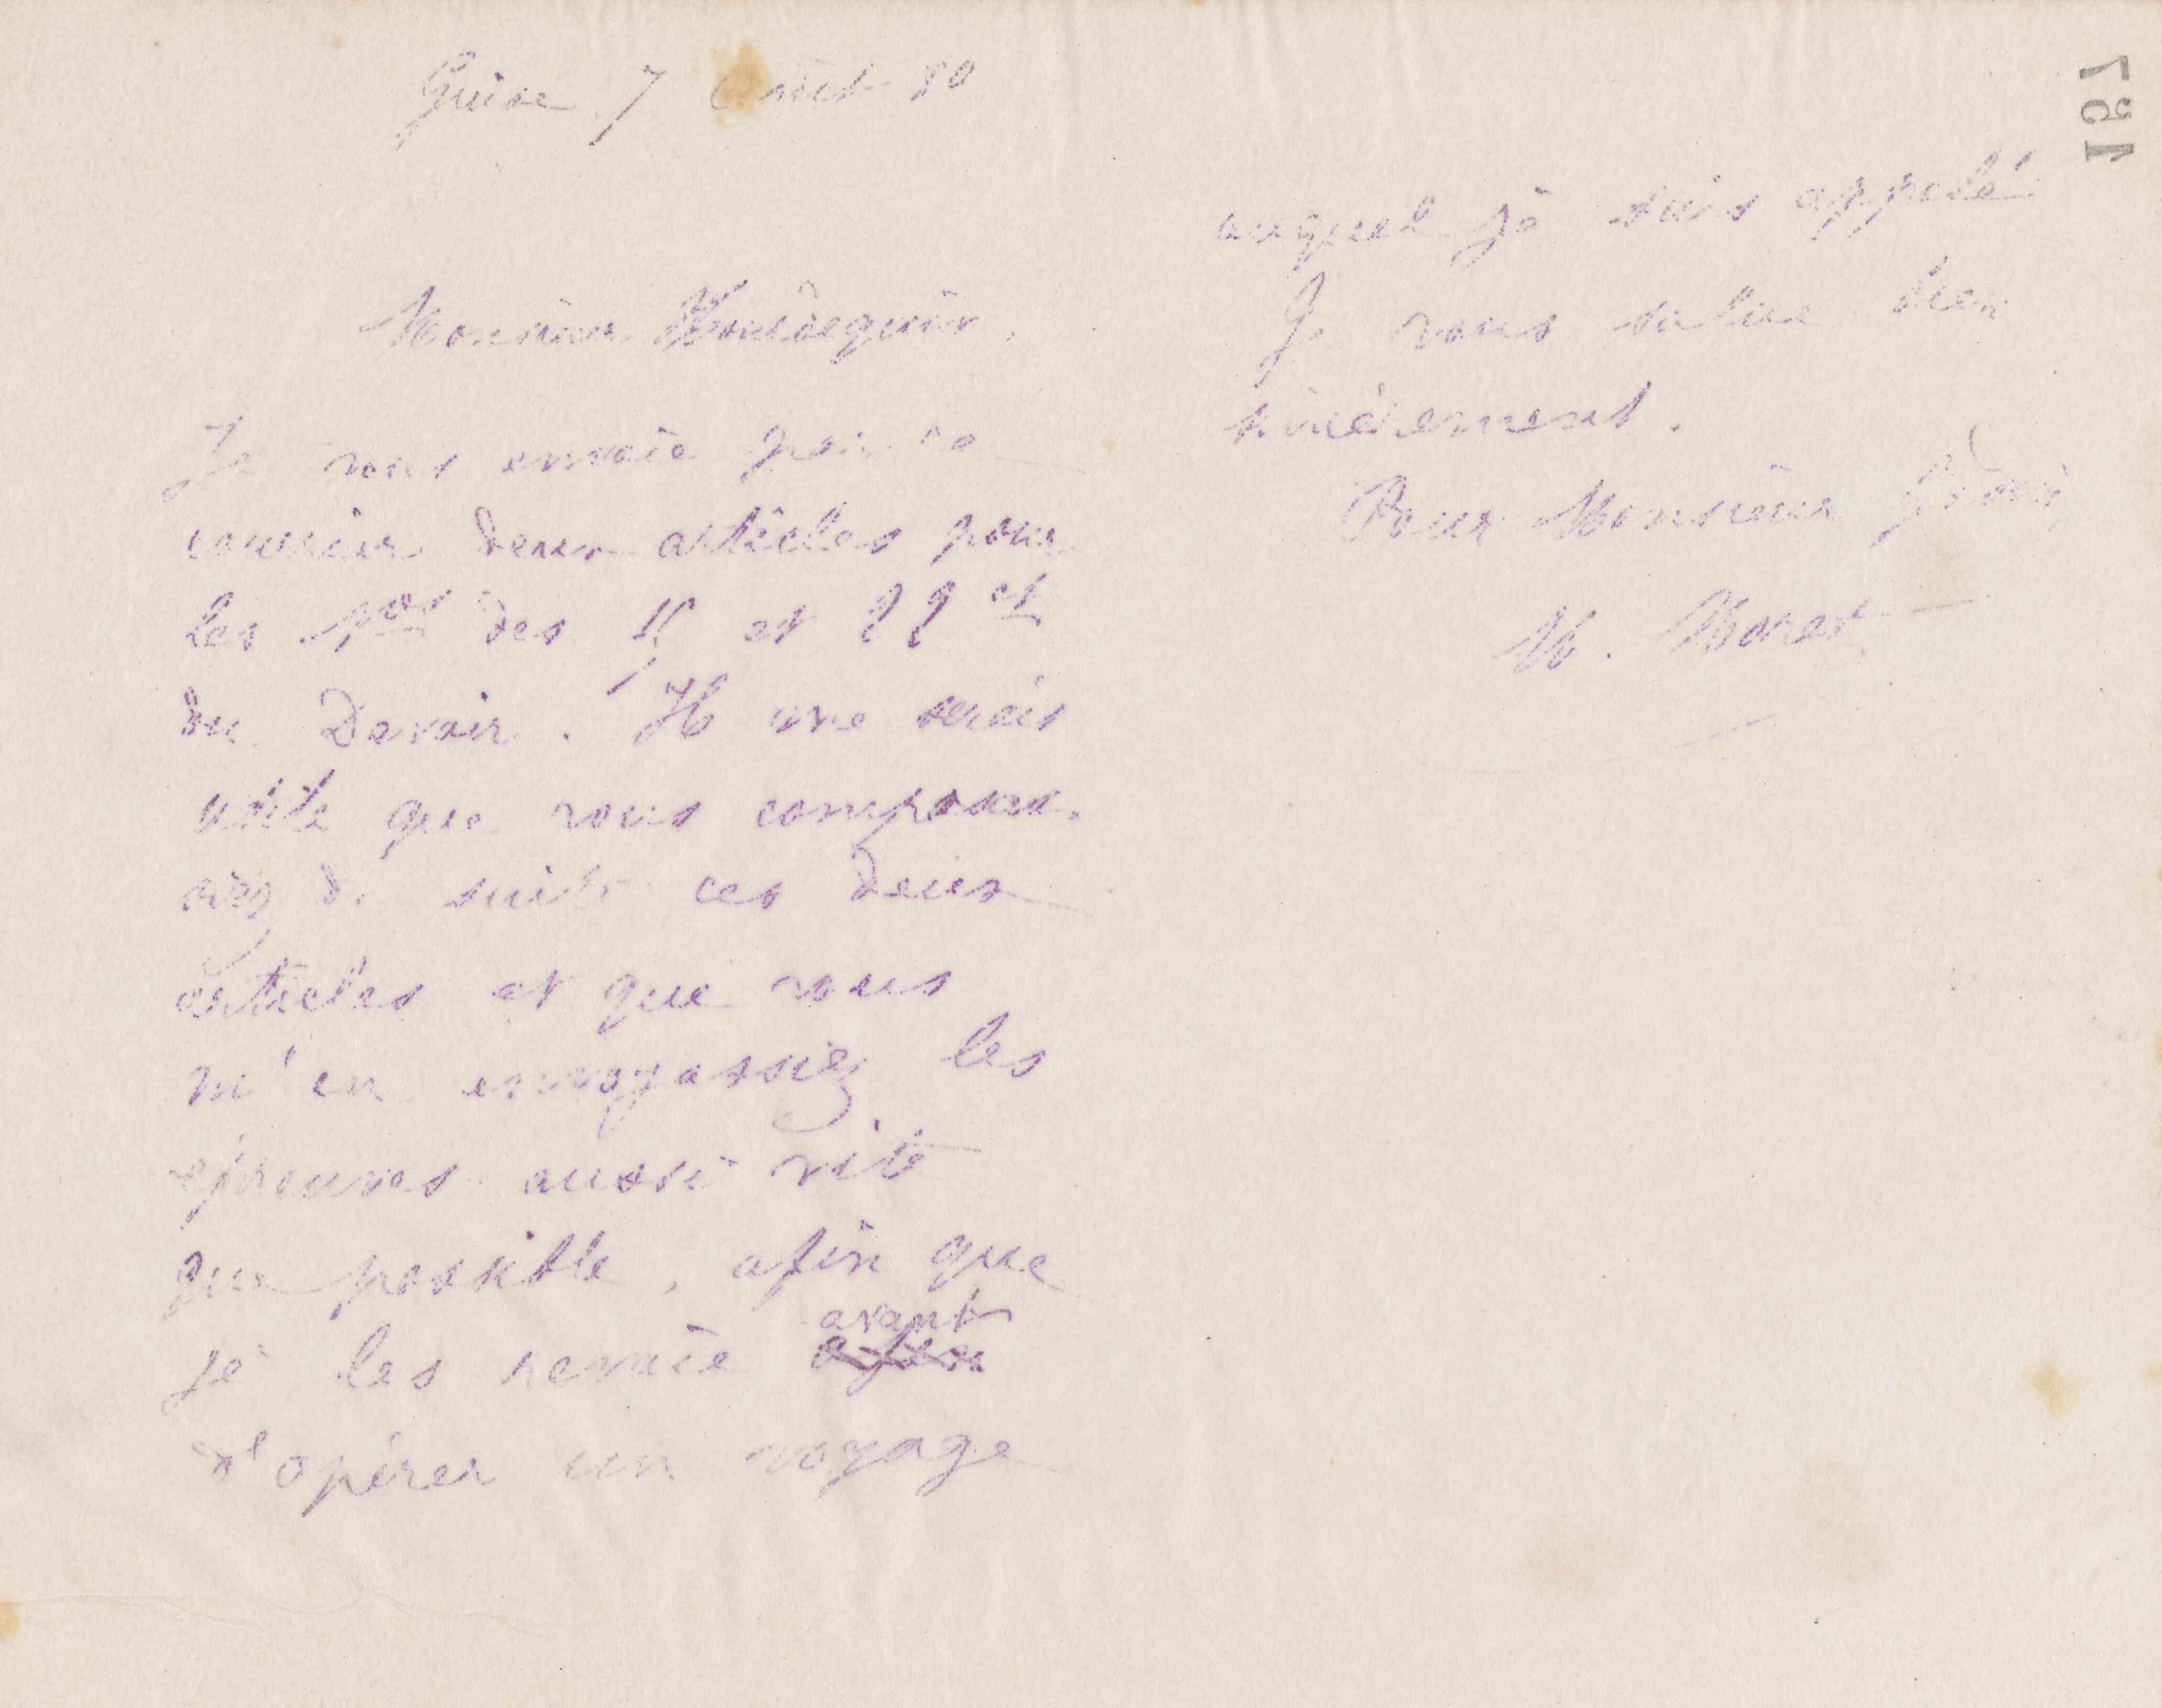 Guise 7 Aout 80
Monsieur Houdequin,
Je vous envoie par ce
courrier deux articles pour
les nos des 15 et 22 ct
du Devoir. Il me serait
utile que vous composas-
siez de suite ces deux
articles et que vous
m'en envoyassiez les
épreuves aussi vite
que possible, afin que
je les renvoie avant
d'opérer un voyage
auquel je suis appelé
Je vous salue bien
sincèrement.
Pour Monsieur Godin,
M. Moret
157